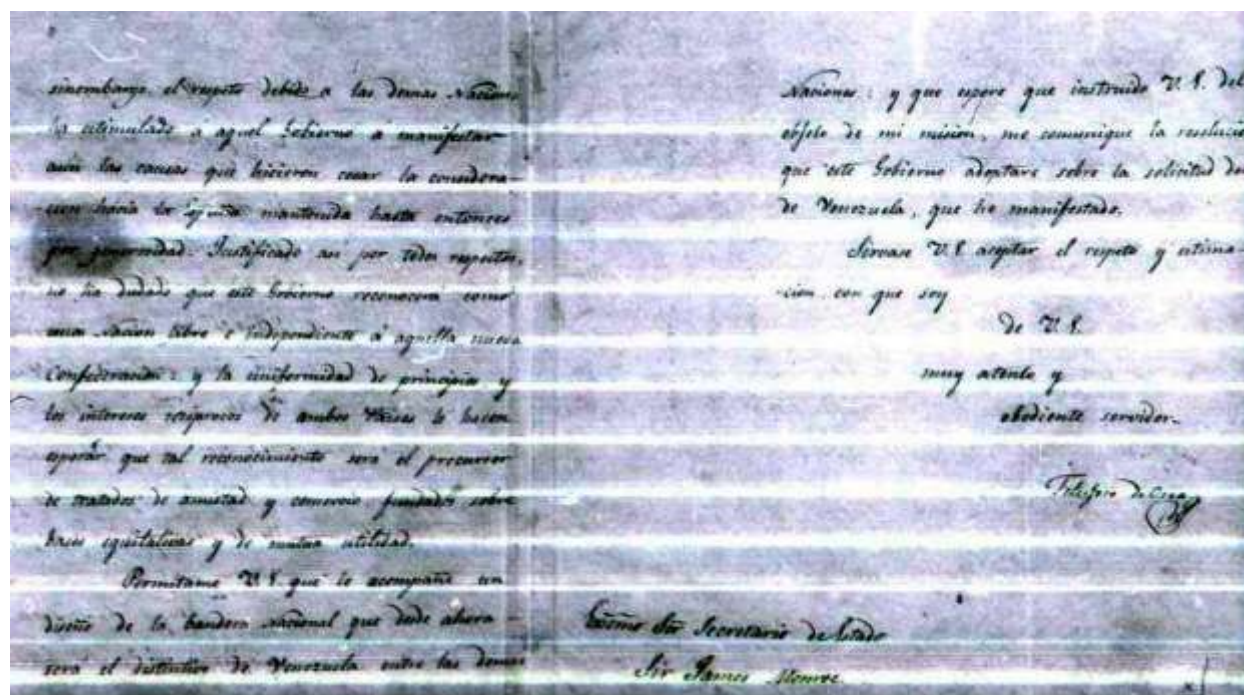 sinembargo el respeto debido a las demas Nacione
ha estimulado a aquel Gobierno á manifestar
aun las causas que hicieron cesar la considera-
cion hácia la España mantenida hasta entonces
por generosidad. Justificado asi por todos respectos,
no ha dudado que este Gobierno reconocerá como
una Nacion libre e independiente á aquella nueva
Confederacion: y la uniformidad de principios y
los intereses reciprocos de ambos Paises le hacen
esperar que tal reconocimiento será el precursor
de tratados de amistad y comercio fundados sobre
bases equitativas y de mutua utilidad.
Permitame V. E. que le acompañe un
diseño de la bandera Nacional que desde ahora
será el distintivo de Venezuela entre las demas
Naciones: y que espere que instruido V. E. del
objeto de mi mision, me comunique la resolucio
que este Gobierno adoptare sobre la solicitud de
de Venezuela, que he manifestado.
Sirvase V. E aceptar el respeto y estima-
cion con que soy
de V. E.
muy atento y
obediente servidor.
Telesforo de Orea
Exmo Sor Secretario de Estado
Sir James Monroe